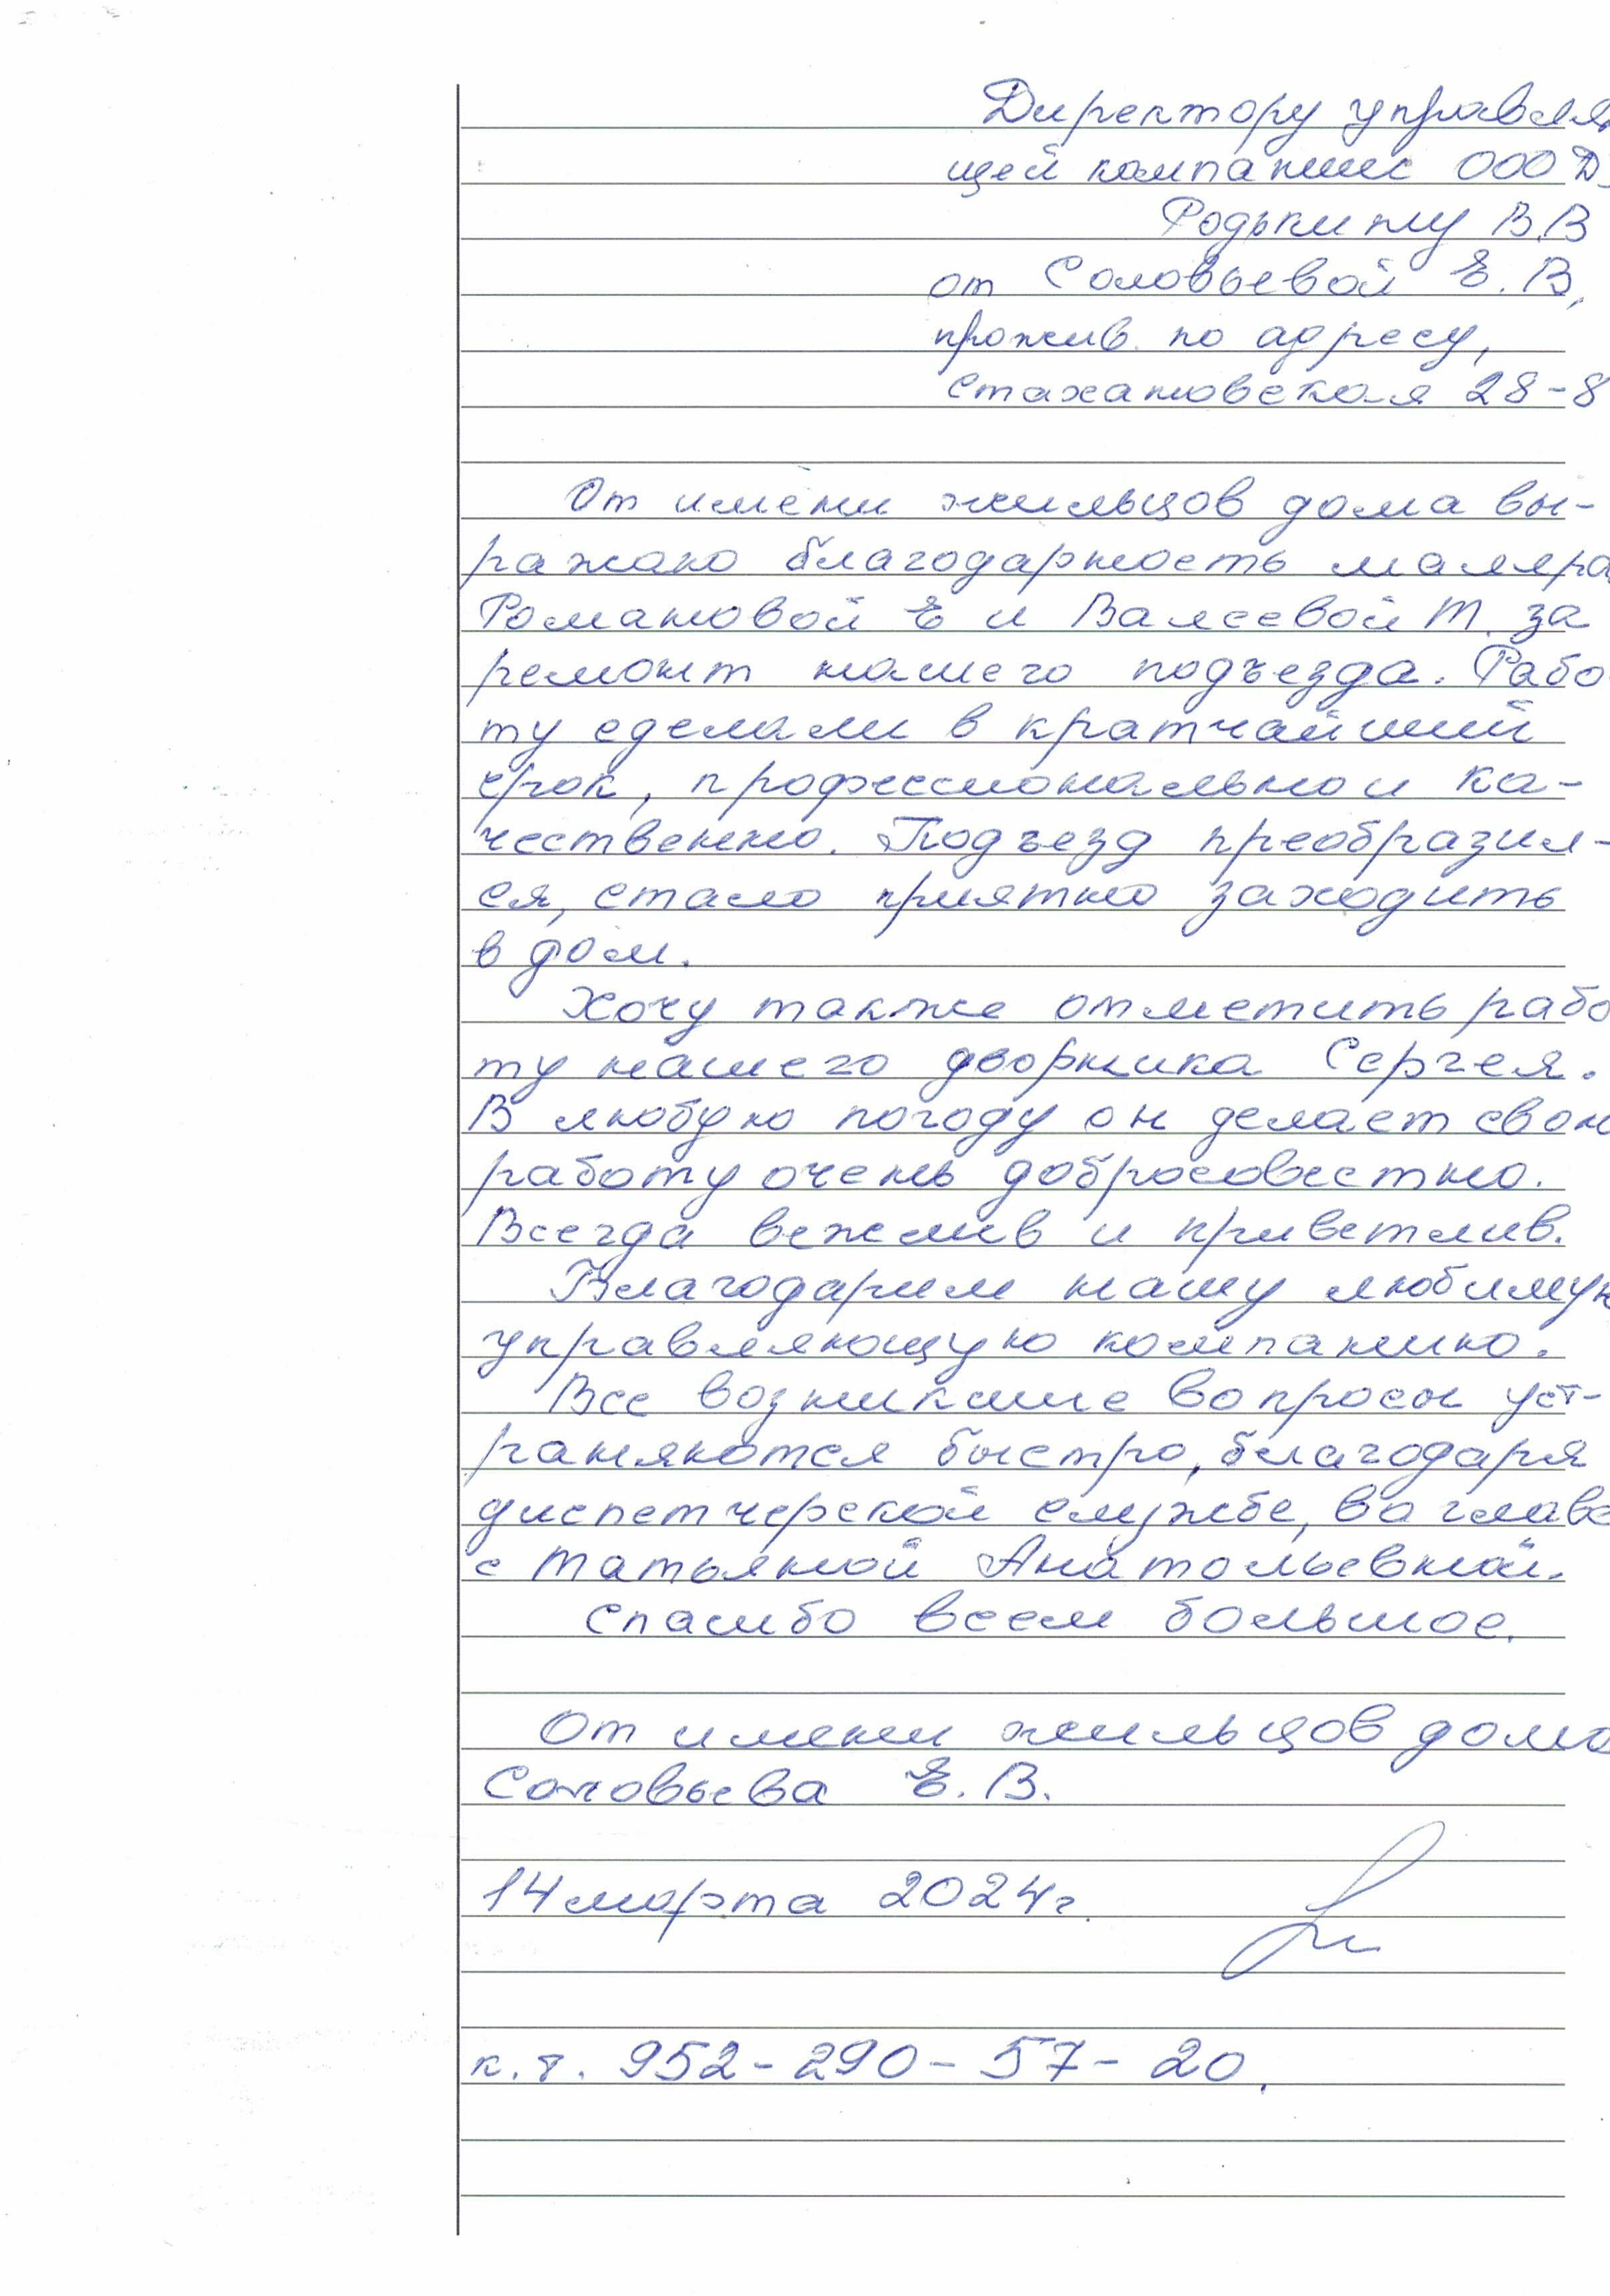 Директору управля
щей компании ООО Д
Родькину В.В
от Соловьевой Е. В,
прожив. по адресу,
Стахановская 28-8
От имени жильцов дома вы-
ражаю благодарность маляра
Романовой Е и Валеевой Т. за
ремонт нашего подъезда. Рабо
ту сделали в кратчайший
срок, профессионально и ка-
чественно. Подъезд преобразил-
ся, стало приятно заходить
в дом.
Хочу также отметить рабо
ту нашего дворника Сергея.
В любую погоду он делает свою
работу очень добросовестно.
Всегда вежлив и приветлив.
Благодарим нашу любимую
управляющую компанию.
Все возникшие вопросы уст-
раняются быстро, благодаря
диспетчерской службе, во главе
с Татьяной Анатольевной.
Спасибо всем большое.
От имени жильцов дома
Соловьева Е. В.
14 марта 2024г.
к.т. 952-290-57-20.